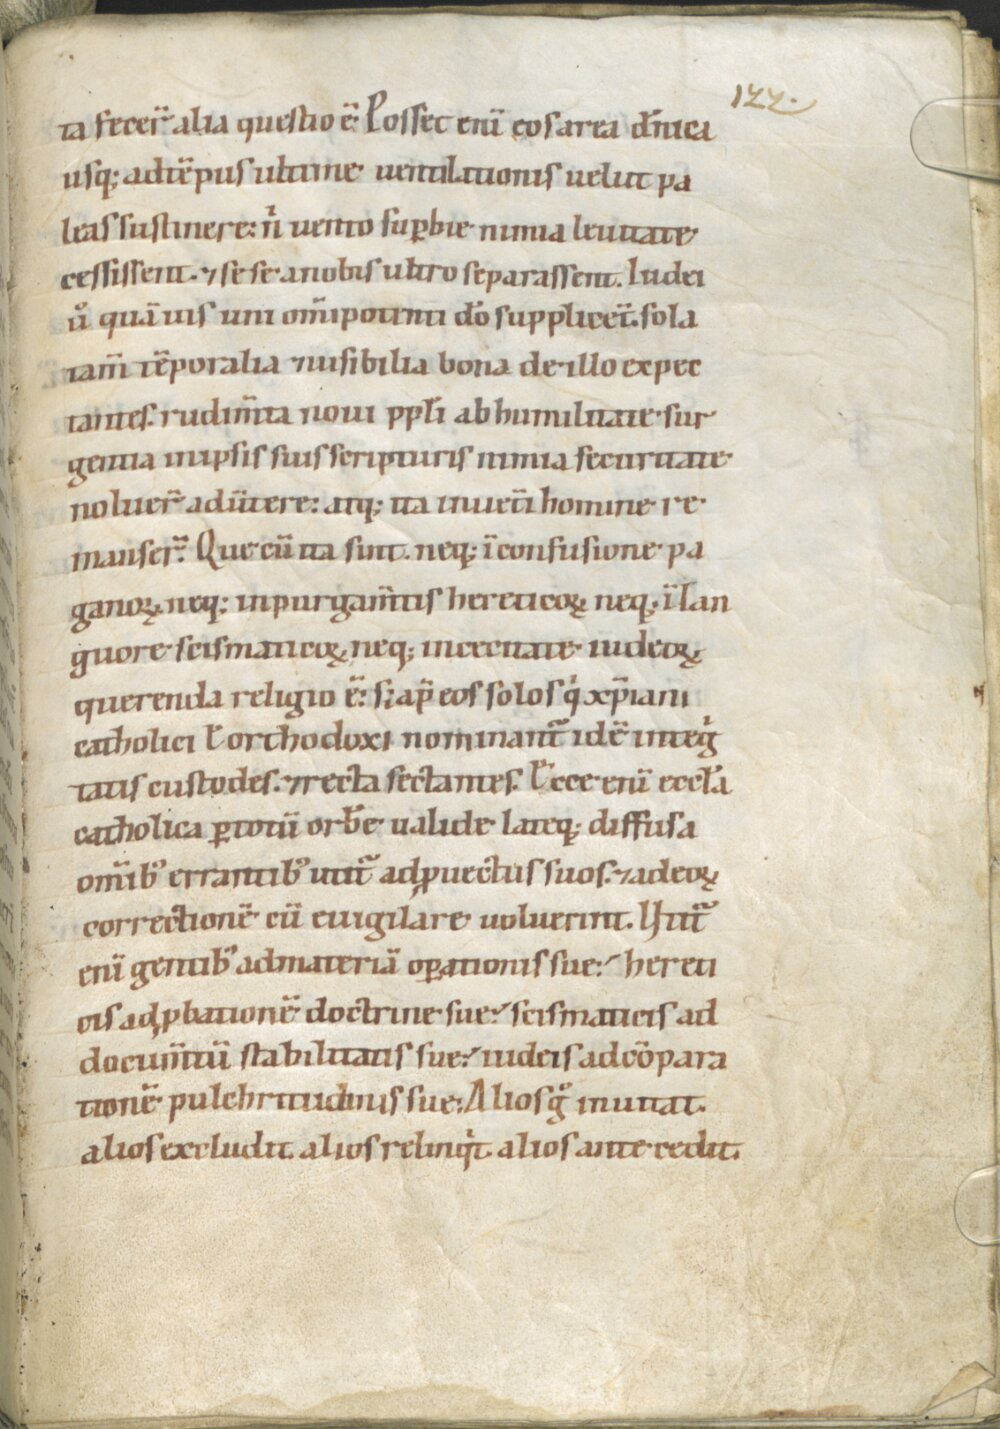 122.
ta fecer̄ alia questio ē. Posset eni̅ eos area dn̅ica
usq; ad te̅pus ultime uentilationis uelut pa
leas sustinere: nͥ uento sup̱bie nimia leuitate
cessissent. ⁊ sese a nobis ultro separassent. Iudei
uͦ qua̅uis uni om̅ipotenti dō supplicet̅. sola
tam̅ te̅poralia ⁊ uisibilia bona de illo expec
tantes. rudim̅ta noui ppl̅i ab humilitate sur
gentia in ipsis suis scripturis nimia securitate
noluer̄ aduͥtere: atq; ita in uet̅i homine re
manser̄. Que cu̅ ita sint. neq; i̅ confusione pa
ganoꝝ, neq; in purgam̅tis hereticoꝝ neq; i̅ lan
guore scismaticoꝝ, neq; in cecitate iudeoꝝ
querenda religio ē: s; ap̅ eos solos qͥ xp̅iani
catholici ł orthodoxi nominant̅ id ē integͥ
tatis custodes. ⁊ recta sectantes. Ecce eni̅ eccl̅a
catholica ꝑ totu̅ orbe̅ ualide lateq; diffusa
om̅ib' errantib' utit̅ ad ꝓuectus suos. ⁊ ad eoꝝ
correctione̅ cu̅ euigilare uoluerint. Utit̅
eni̅ gentib' ad materia̅ oꝑationis sue: hereti
cis ad ꝓbatione̅ doctrine sue: scismaticis ad
docum̅tu̅ stabilitatis sue: iudeis ad co̅para
tione̅ pulchritudinis sue: Alios gͦ inuitat.
alios excludit. alios relinqͥt. alios antecedit.